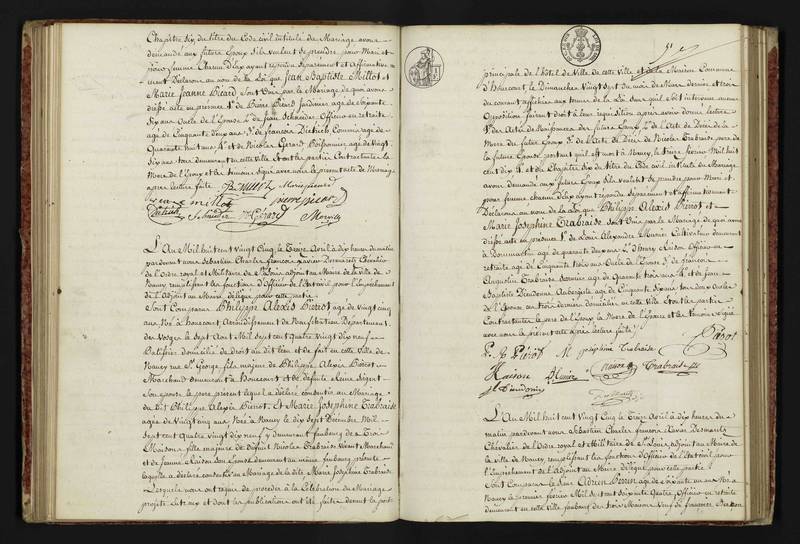 Chapitre Six du titre du Code civil intitulé du Mariage avons
demandé aux futurs Epoux s'ils veulent se prendre pour Mari et
pour femme. Chacun d'eux ayant répondu séparément et affirmative-
ment Déclarons au nom de la Loi que Jean Baptiste Millot et
Marie Jeanne Picard sont Unis par le Mariage de quoi avons
dressé acte en présence de Pierre Picard Jardinier agé de soixante
Six ans Oncle de l'Epouse, de Jean Schneider Officier en retraite
agé de Cinquante deux ans, de François Dietrich Commis agé de
Quarante huit ans et de Nicolas Gérard Poissonnier agé de Vingt
Six ans tous demeurant en cette Ville et ont les parties Contractantes la
Mere de l'Epoux et les temoins signé avec nous le present acte de Mariage
après lecture faite.
Marie picard
jean millot pierre picard
Dietrich Schneider N Gérard
L'An Mil huit cent Vingt Cinq le Treize Avril à dix heures du matin
pardevant nous Sébastien Charles François Xavier Desmarets Chevalier
de l'Ordre royal et Militaire de St Louis adjoint au Maire de la Ville de
Nancy remplissant les fonctions d'Officier de l'Etat civil pour l'empêchement
de l'Adjoint au Maire délégué pour cette partie.
Sont Comparus Philippe Alexis Pierrot agé de vingt cinq
ans Né à Arrondissement de Neufchâteau Département
des Vosges le Sept Aout Mil Sept cent quatre Vingt dix neuf
domicilié de droit au dit lieu et de fait en cette Ville de
Nancy rue St George, fils majeur de Philippe Alexis Pierrot
Marchand demeurant à et de défunte Reine
Son épouse le pere présent lequel a déclaré consentir au Mariage
du dit Philippe Alexis Pierrot. Et Marie Josephine Trabraise
agée de Vingt cinq ans Née à Nancy le dix Sept Décembre Mil
Sept cent Quatre Vingt dix neuf y demeurant faubourg des Trois
Maisons fille majeure de défunt Nicolas Trabraise Vivant Marchand
et de Jeanne Raison son Epouse demeurant au même faubourg présente
laquelle a déclaré consentir au Mariage de la dite Marie Josephine Trabraise
Lesquels nous ont requis de procéder à la Célébration du Mariage
projeté entre eux et dont les publications ont été faites devant la porte
principale de l'hôtel de Ville de cette Ville et de la Maison Commune
d' le Dimanche Vingt Sept du mois de Mars dernier et trois
du courant affichées aux termes de la Loi sans qu'il soit intervenu aucune
Opposition faisant droit à leur réquisition après avoir donné lecture
des Actes de Naissances des futurs Epoux, de l'Acte de Décès de la
Mere du futur Epoux, de l'Acte de Décès de Nicolas Trabraise pere de
la future Epouse portant qu'il est mort à Nancy le Mil huit
cent dix et du Chapitre Six du titre du Code civil intitulé du Mariage
avons demandé aux futurs Epoux s'ils veulent se prendre pour Mari et
pour femme, chacun d'eux ayant répondu séparément et affirmativement
Déclarons au nom de la Loi que Philippe Alexis Pierrot et
Marie Josephine Trabraise sont Unis par le Mariage de quoi avons
dressé acte en présence de Louis Alexandre Cultivateur demeurant
à agé de quarante deux ans, Raison Officier en
retraite agé de Cinquante trois ans Oncle de l'Epouse, de François
Augustin Trabraise agé de Quarante trois ans et de Jean
Baptiste Dieudonné Aubergiste agé de Cinquante Six ans tous deux Oncles
de l'Epouse, ces trois derniers domiciliés en cette Ville et ont les parties
Contractantes le pere de l'Epoux la Mere de l'Epouse et les temoins signé
avec nous le présent acte après lecture faite.
P. A Pierrot M Josephine Trabraise
Raison Trabraise
Dieudonné
L'An Mil huit cent Vingt Cinq le Treize Avril à dix heures du
matin pardevant nous Sébastien Charles françois Xavier Desmarets
Chevalier de l'Ordre royal et Militaire de St Louis, adjoint au Maire de
la ville de Nancy, remplissant les fonctions d'Officier de l'Etat civil pour
l'empêchement de l'Adjoint au Maire délégué pour cette partie.
Sont Comparus le Sieur Adrien Perrin agé de soixante un ans Né à
Nancy le premier février Mil Sept cent soixante Quatre Officier en retraite
demeurant en cette ville faubourg des trois Maisons Veuf de françoise